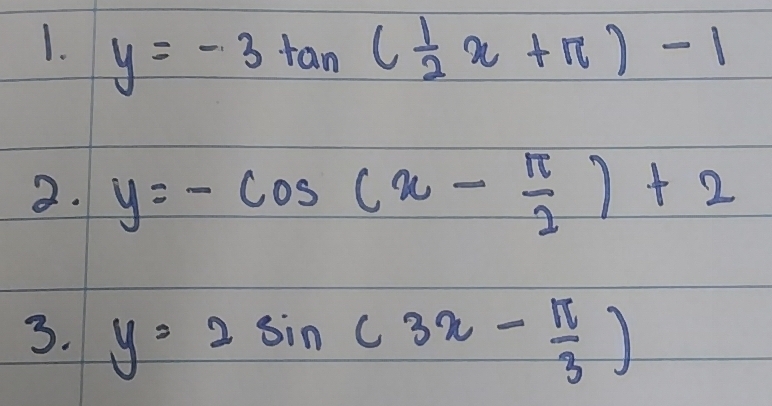 1. y = - 3 tan ( 1/2 x + π ) - 1
2. y = - cos ( x - π/2 ) + 2
3. y = 2 sin ( 3x - π/3 )